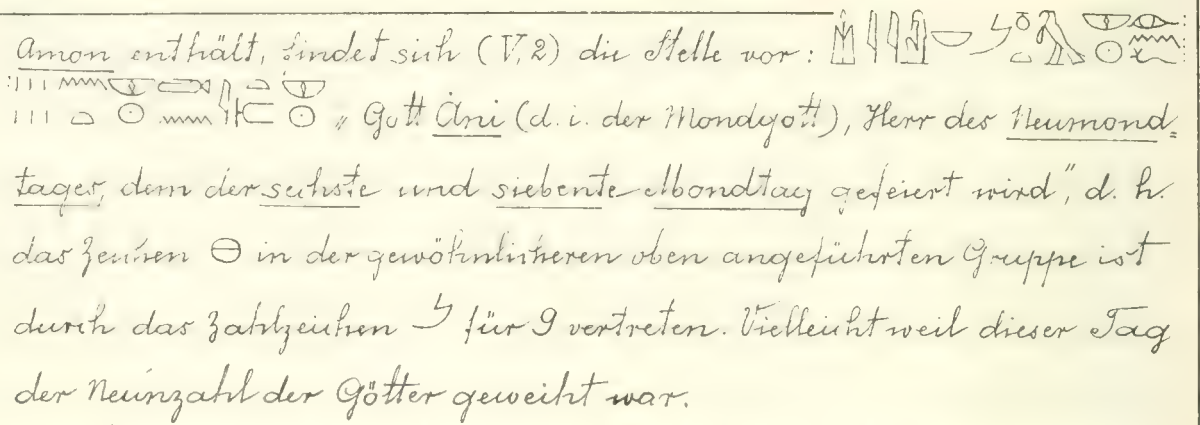 Amon enthält, findet sich (V, 2) die Stelle vor:
„Gott Ȧni (d. i. der Mondgott), Herr des Neumond=
tages, dem der sechste und siebente Mondtag gefeiert wird", d. h.
das Zeichen in der gewöhnlicheren oben angeführten Gruppe ist
durch das Zahlzeichen für 9 vertreten. Vielleicht weil dieser Tag
der Neunzahl der Götter geweiht war.